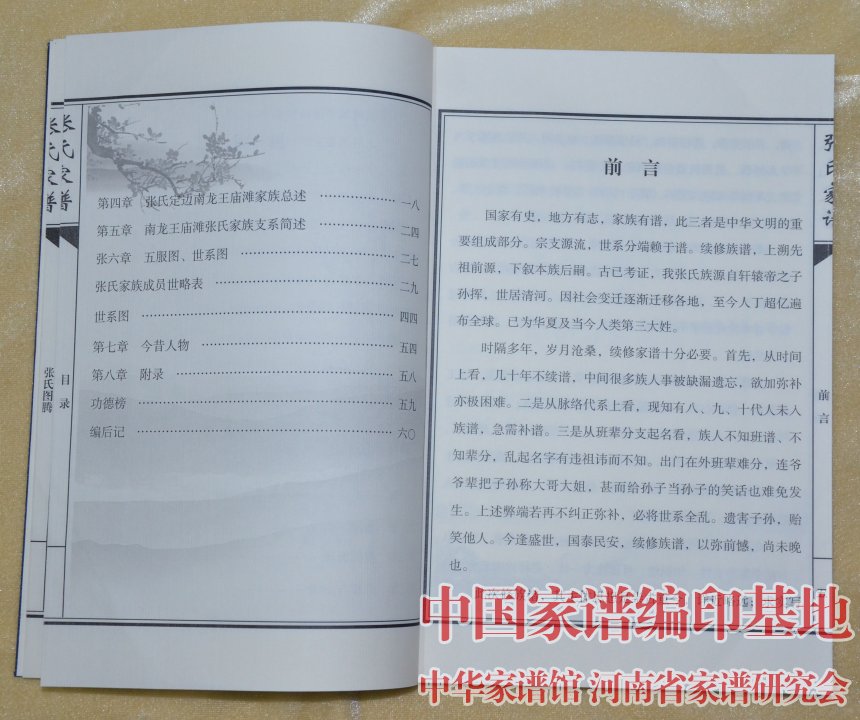 张氏家谱
张氏家谱
张氏图腾
目录
第四章 张氏定边南龙王庙滩家族总述 ………… 一八
第五章 南龙王庙滩张氏家族支系简述 ………… 二四
张六章 五服图、世系图 ………… 二七
张氏家族成员世略表 ………… 二九
世系图 ………… 四四
第七章 今昔人物 ………… 五四
第八章 附录 ………… 五八
功德榜 ………… 五九
编后记 ………… 六〇
前言
国家有史，地方有志，家族有谱，此三者是中华文明的重
要组成部分。宗支源流，世系分端赖于谱。续修族谱，上溯先
祖前源，下叙本族后嗣。古已考证，我张氏族源自轩辕帝之子
孙挥，世居清河。因社会变迁逐渐迁移各地，至今人丁超亿遍
布全球。已为华夏及当今人类第三大姓。
时隔多年，岁月沧桑，续修家谱十分必要。首先，从时间
上看，几十年不续谱，中间很多族人事被缺漏遗忘，欲加弥补
亦极困难。二是从脉络代系上看，现知有八、九、十代人未入
族谱，急需补谱。三是从班辈分支起名看，族人不知班谱、不
知辈分，乱起名字有违祖讳而不知。出门在外班辈难分，连爷
爷辈把子孙称大哥大姐，甚而给孙子当孙子的笑话也难免发
生。上述弊端若再不纠正弥补，必将世系全乱。遗害子孙，贻
笑他人。今逢盛世，国泰民安，续修族谱，以弥前憾，尚未晚
也。
张氏家谱
前言
中国家谱编印基地
中华家谱馆 河南省家谱研究会